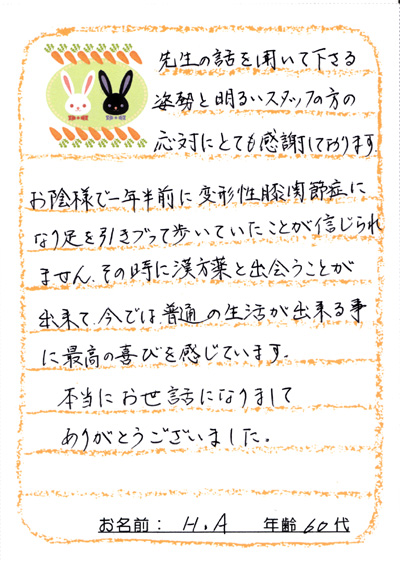 先生の話を聞いて下さる
姿勢と明るいスタッフの方の
応対にとても感謝しております
お陰様で一年半前に変形性膝関節症に
なり足を引きづって歩いていたことが信じられ
ません、その時に漢方薬と出会うことが
出来て、今では普通の生活が出来る事
に最高の喜びを感じています。
本当にお世話になりまして
ありがとうございました。
お名前： H.A 年齢 60代